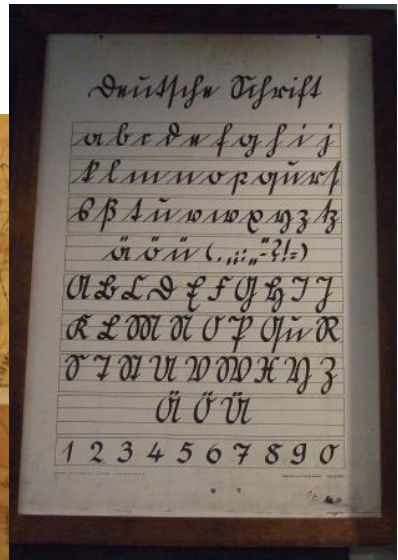 Deutsche Schrift
a b c d e f g h i j
k l m n o p qu r ſ
s ß t u v w x y z tz
ä ö ü ( . , ; : „ “ - ? ! = )
A B C D E F G H I J
K L M N O P Qu R
S T St U V W X Y Z
Ä Ö Ü
1 2 3 4 5 6 7 8 9 0